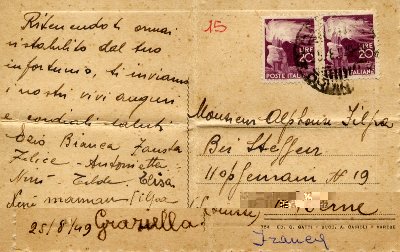 Ritenendoti ormai
ristabilito dal tuo
infortunio, ti inviamo
i nostri vivi auguri
e cordiali saluti
Ezio Bianca Fausta
Felice - Antonietta
Ninì Tilde Elisa
maman Filpa
25/8/49 Graziella
15
LIRE
20
POSTE ITALIANE
LIRE
20
ITALIANE
Monsieur Alphonse Filpa
Bei Steffen
Hopfenam N 19
(Suisse) Berne
Francia